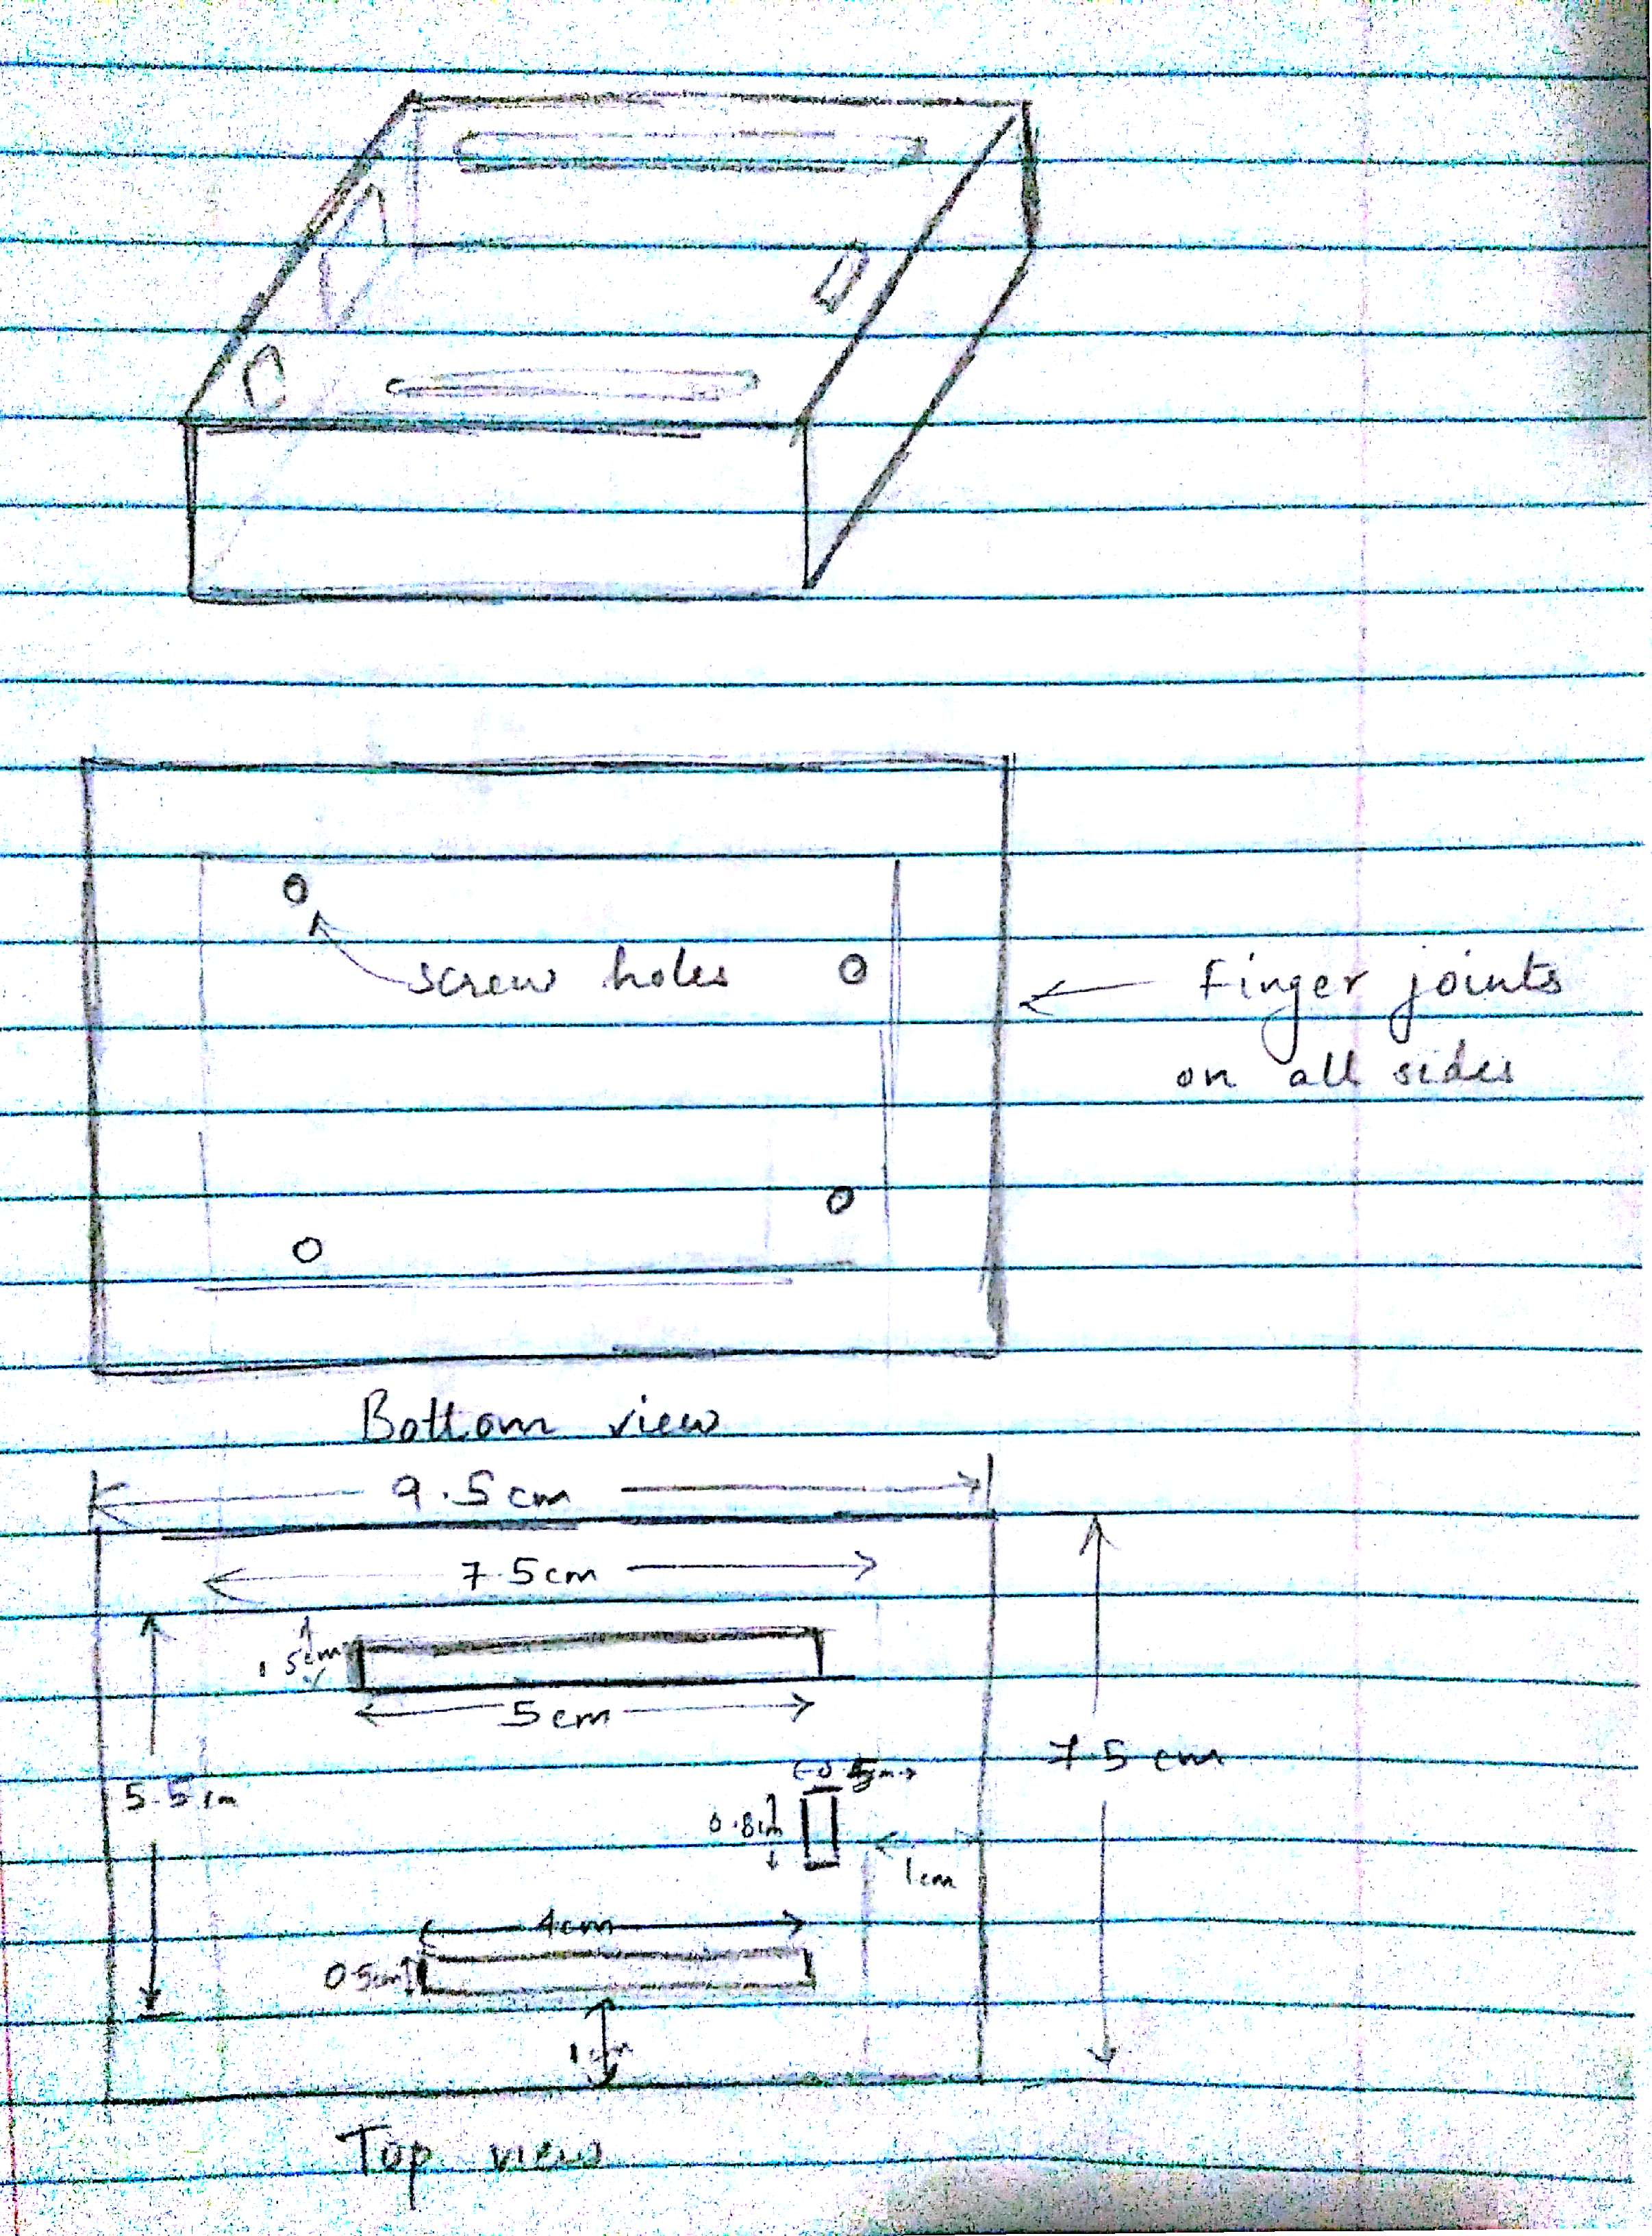 screw holes
Finger joints
on all sides
Bottom view
9.5cm
7.5cm
.5cm
5cm
7.5 cm
5.5cm
0.8cm
1cm
4cm
0.5cm
1cm
Top view